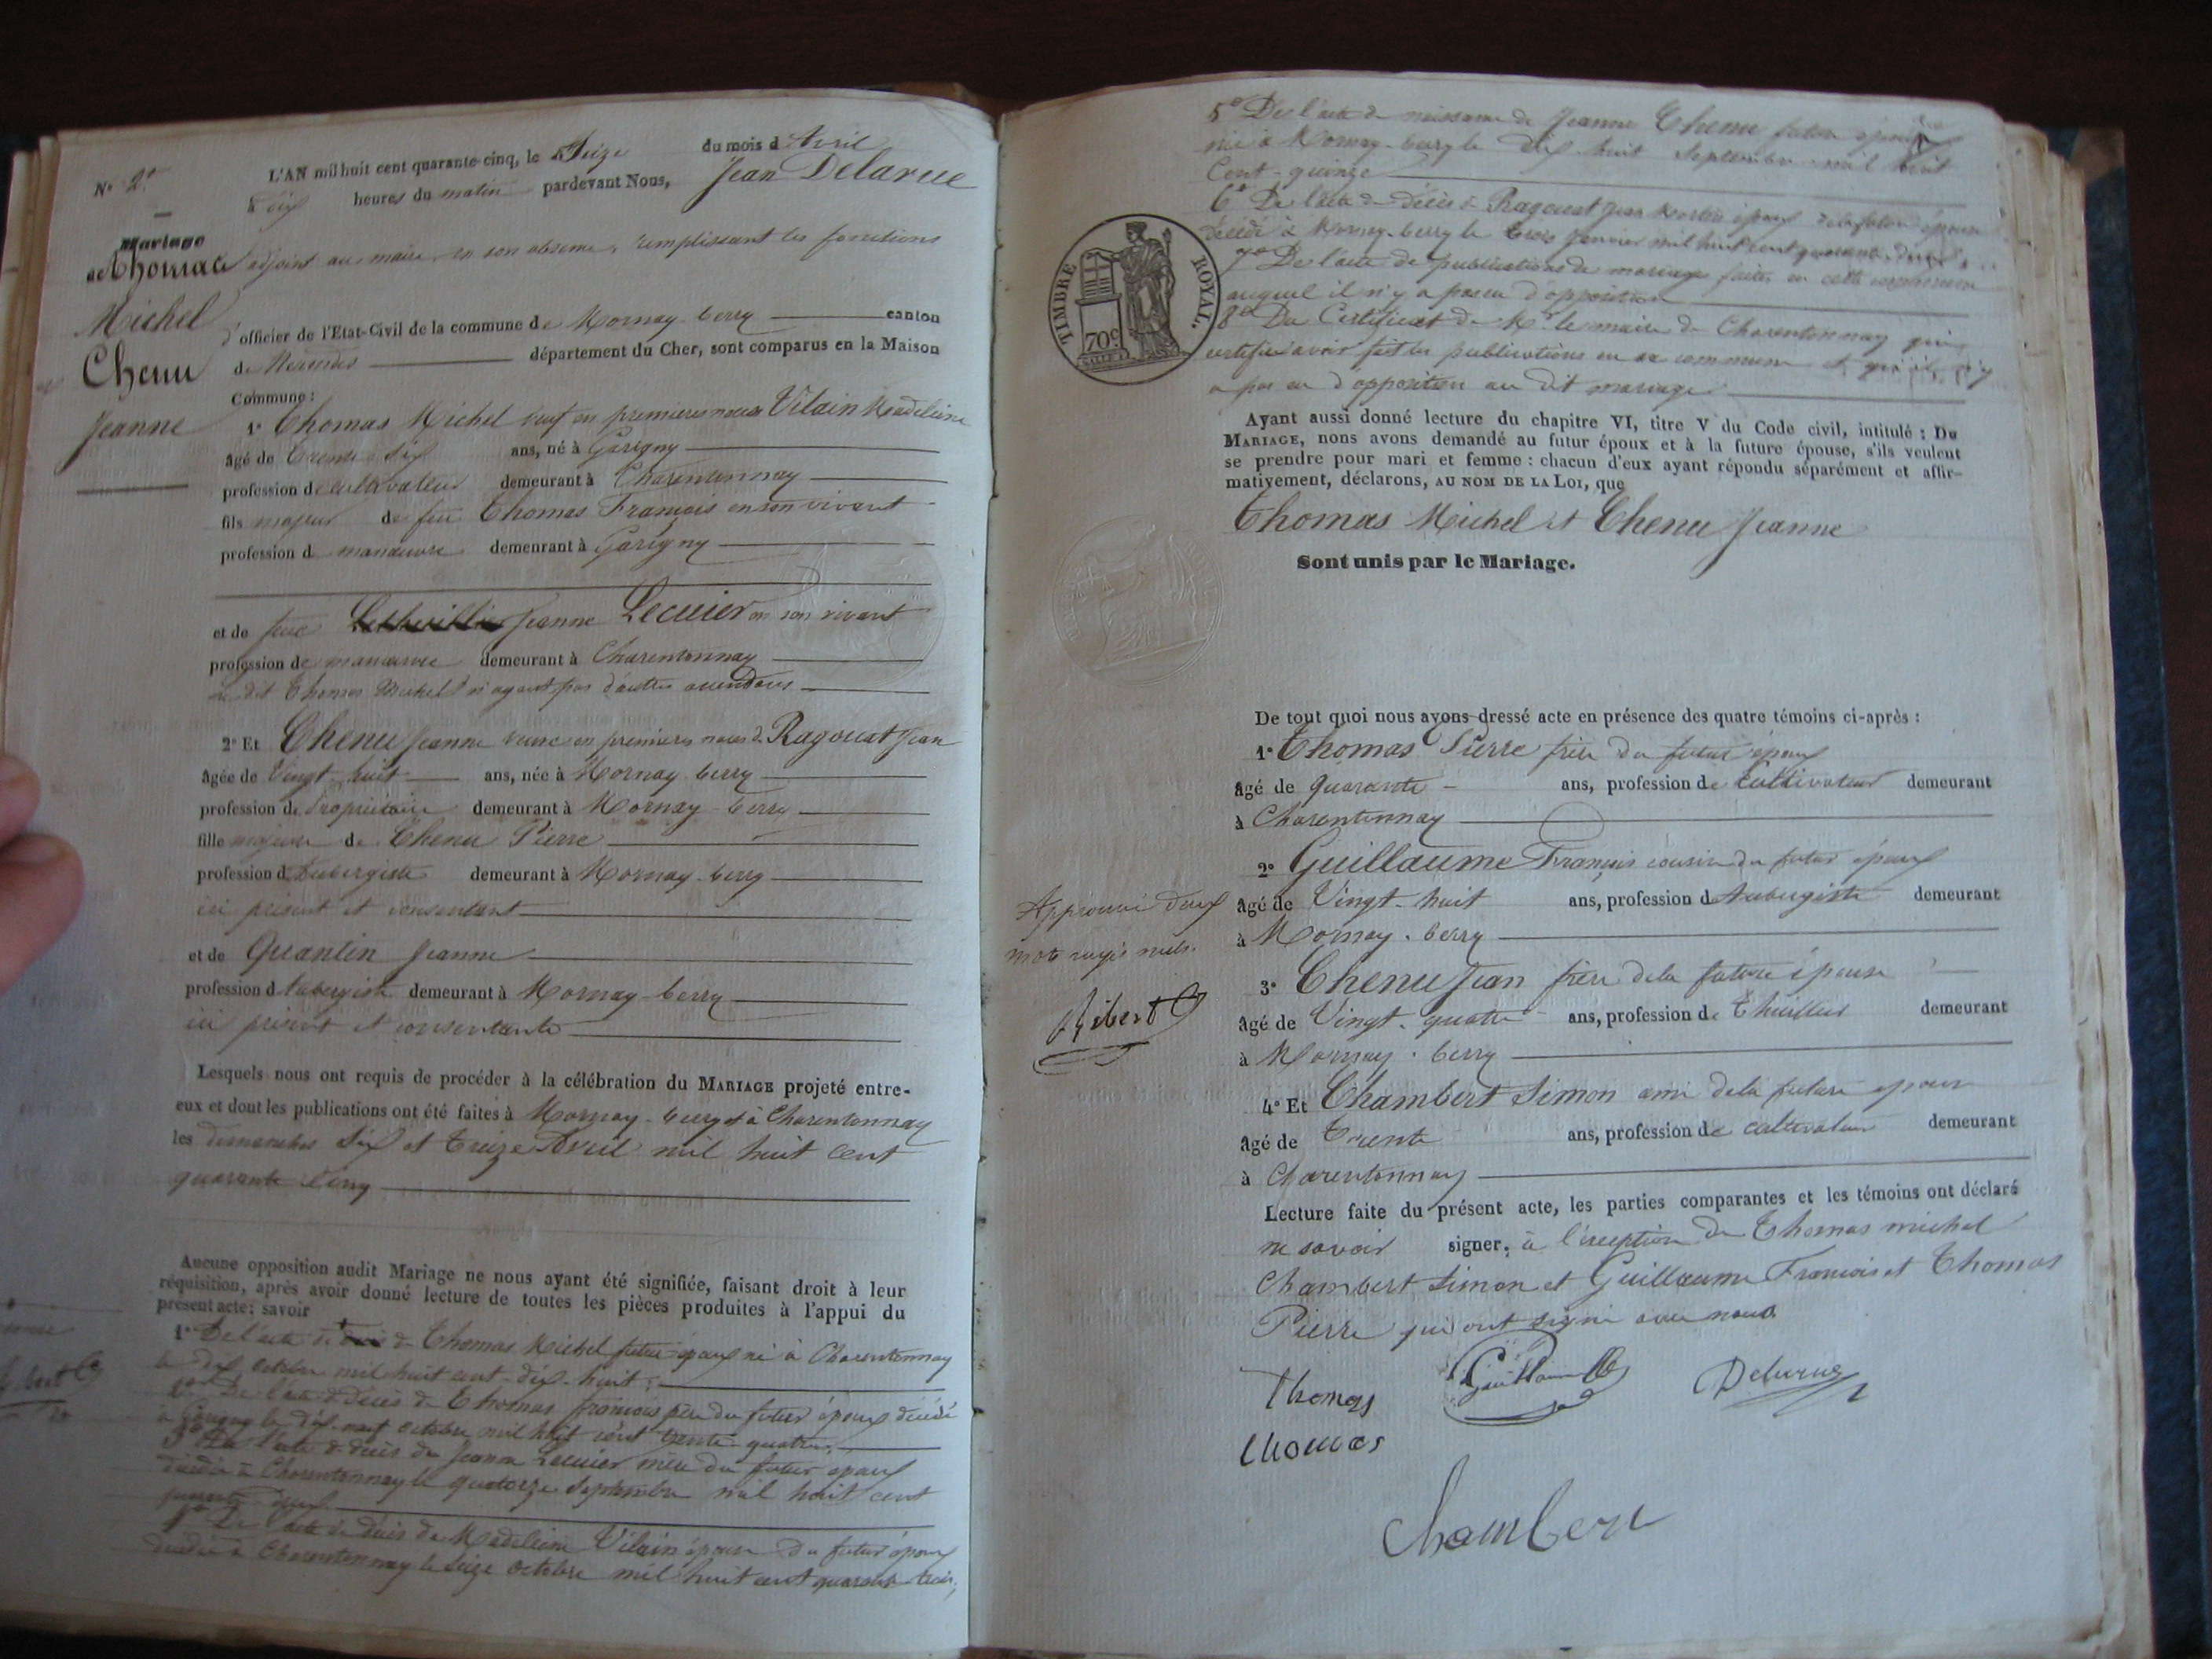 N° 2.
L'AN mil huit cent quarante-cinq, le Seize du mois d Avril
à dix heures du matin pardevant Nous, Jean Delarue
Mariage
de Thomas
Michel
et
Chenu
Jeanne
adjoint au maire en son absence, remplissant les fonctions
d'officier de l'Etat-Civil de la commune de Mornay-berry canton
de Nérondes département du Cher, sont comparus en la Maison
Commune :
1° Thomas Michel veuf en premieres noces Vilain Madeleine
âgé de trente six ans, né à Garigny
profession de cultivateur demeurant à Charentonnay
fils majeur de feu Thomas François en son vivant
profession d manœuvre demeurant à Garigny
et de feue Jeanne Lecuier en son vivant
profession de manœuvre demeurant à Charentonnay
le dit Thomas Michel n'ayant pas d'autres ascendans
2° Et Chenu Jeanne veuve en premieres noces de Ragouat Jean
âgée de Vingt-huit ans, née à Mornay-berry
profession de Propriétaire demeurant à Mornay-berry
fille majeure de Chenu Pierre
profession d'Aubergiste demeurant à Mornay-berry
ici présent et consentant
et de Quantin Jeanne
profession d'Aubergiste demeurant à Mornay-berry
ici présente et consentante
Lesquels nous ont requis de procéder à la célébration du MARIAGE projeté entre-
eux et dont les publications ont été faites à Mornay-berry et à Charentonnay
les dimanches Six et treize Avril mil huit cent
quarante Cinq
Aucune opposition audit Mariage ne nous ayant été signifiée, faisant droit à leur
réquisition, après avoir donné lecture de toutes les pièces produites à l'appui du
présent acte; savoir
1° De l'acte de Thomas Michel futur époux né à Charentonnay
le dix octobre mil huit cent-dix-huit;
2° De l'acte de décès de Thomas françois père du futur époux décédé
à Garigny le dix-neuf octobre mil huit cent trente-quatre;
3° De l'acte de décès de Jeanne Lecuier mère du futur époux
décédée à Charentonnay le quatorze Septembre mil huit cent
4° De l'acte de décès de Madeleine Vilain épouse du futur époux
décédée à Charentonnay le Seize octobre mil huit cent quarante trois;
5° De l'acte de naissance de Jeanne Chenu future épouse
née à Mornay-berry le dix-huit Septembre mil huit
Cent-quinze
6° De l'acte de décès de Ragouat Jean Martin époux de la future épouse
décédé à Mornay-berry le trois janvier mil huit cent quarante
7° De l'acte de publications de mariage faites en cette commune
auquel il n'y a pas eu d'opposition
8° Du Certificat de Mr le maire de Charentonnay qui
certifie avoir fait les publications en sa commune et qu'il n'y
a pas eu d'opposition au dit mariage
TIMBRE ROYAL.
70c
Ayant aussi donné lecture du chapitre VI, titre V du Code civil, intitulé : DU
MARIAGE, nous avons demandé au futur époux et à la future épouse, s'ils veulent
se prendre pour mari et femme : chacun d'eux ayant répondu séparément et affir-
mativement, déclarons, AU NOM DE LA LOI, que
Thomas Michel et Chenu Jeanne
Sont unis par le Mariage.
De tout quoi nous avons dressé acte en présence des quatre témoins ci-après :
1° Thomas Pierre frère du futur époux
âgé de quarante ans, profession de Cultivateur demeurant
à Charentonnay
2° Guillaume François cousin du futur époux
âgé de Vingt-huit ans, profession d'Aubergiste demeurant
à Mornay-berry
Approuvé deux
mots rayés nuls.
3° Chenu Jean frère de la future épouse
âgé de Vingt-quatre ans, profession de Thuillier demeurant
à Mornay-berry
4° Et Chambert Simon ami de la future épouse
âgé de Trente ans, profession de cultivateur demeurant
à Charentonnay
Lecture faite du présent acte, les parties comparantes et les témoins ont déclaré
ne savoir signer, à l'exception de Thomas michel
Chambert Simon et Guillaume François et Thomas
Pierre qui ont signé avec nous
Thomas Guillaume Delarue
thomas
Chambert